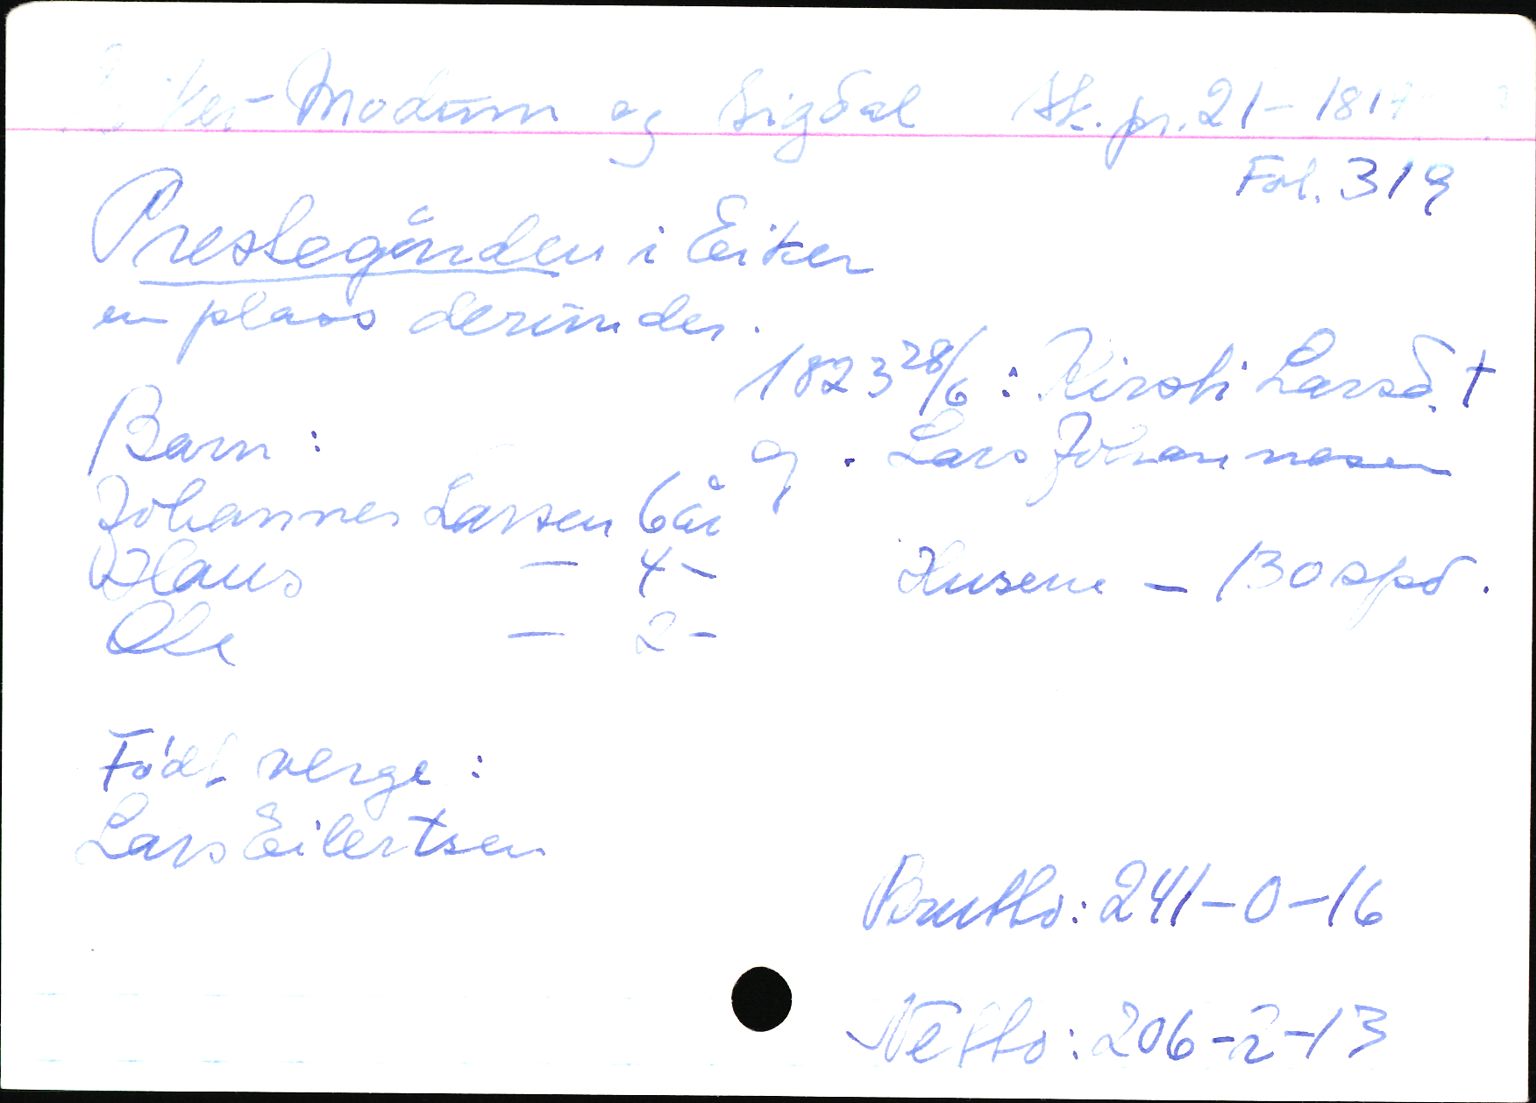 Eiker-Modum og Sigdal Sk. pr. 21-1817
Fol. 319
Prestegården i Eiker
en plass derunder.
1823 28/6 : Kirsti Larsd. †
g. Lars Johannesen
Barn :
Johannes Larsen 6 år
Klaus — 4 -
Ole — 2 -
Husene - 130 spd.
Född verge :
Lars Eilertsen
Brutto: 241-0-16
Netto: 206-2-13